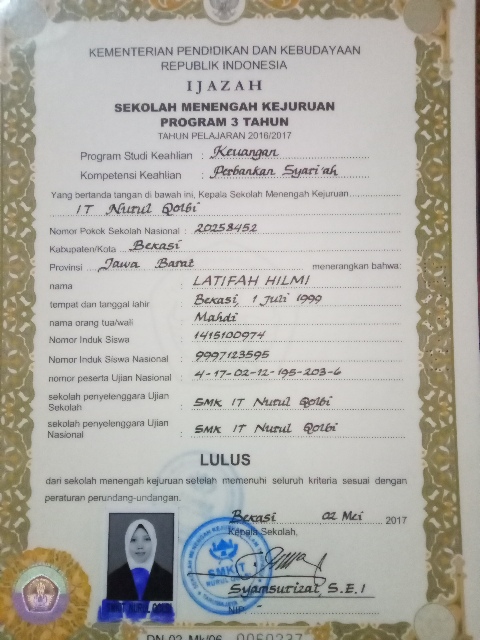 KEMENTERIAN PENDIDIKAN DAN KEBUDAYAAN
REPUBLIK INDONESIA
IJAZAH
SEKOLAH MENENGAH KEJURUAN
PROGRAM 3 TAHUN
TAHUN PELAJARAN 2016/2017
Program Studi Keahlian : Keuangan
Kompetensi Keahlian : Perbankan Syari'ah
Yang bertanda tangan di bawah ini, Kepala Sekolah Menengah Kejuruan
IT Nurul Qolbi
Nomor Pokok Sekolah Nasional : 20258452
Kabupaten/Kota Bekasi
Provinsi Jawa Barat menerangkan bahwa:
nama : LATIFAH HILMI
tempat dan tanggal lahir : Bekasi, 1 Juli 1999
nama orang tua/wali : Mahdi
Nomor Induk Siswa : 1415100974
Nomor Induk Siswa Nasional : 9997123595
nomor peserta Ujian Nasional : 4-17-02-12-195-203-6
sekolah penyelenggara Ujian Sekolah : SMK IT Nurul Qolbi
sekolah penyelenggara Ujian Nasional : SMK IT Nurul Qolbi
LULUS
dari sekolah menengah kejuruan setelah memenuhi seluruh kriteria sesuai dengan
peraturan perundang-undangan.
Bekasi 02 Mei 2017
Kepala Sekolah,
SMK IT
Syamsurizal S.E.I
NIP
DN-02 Mk/06 0050237